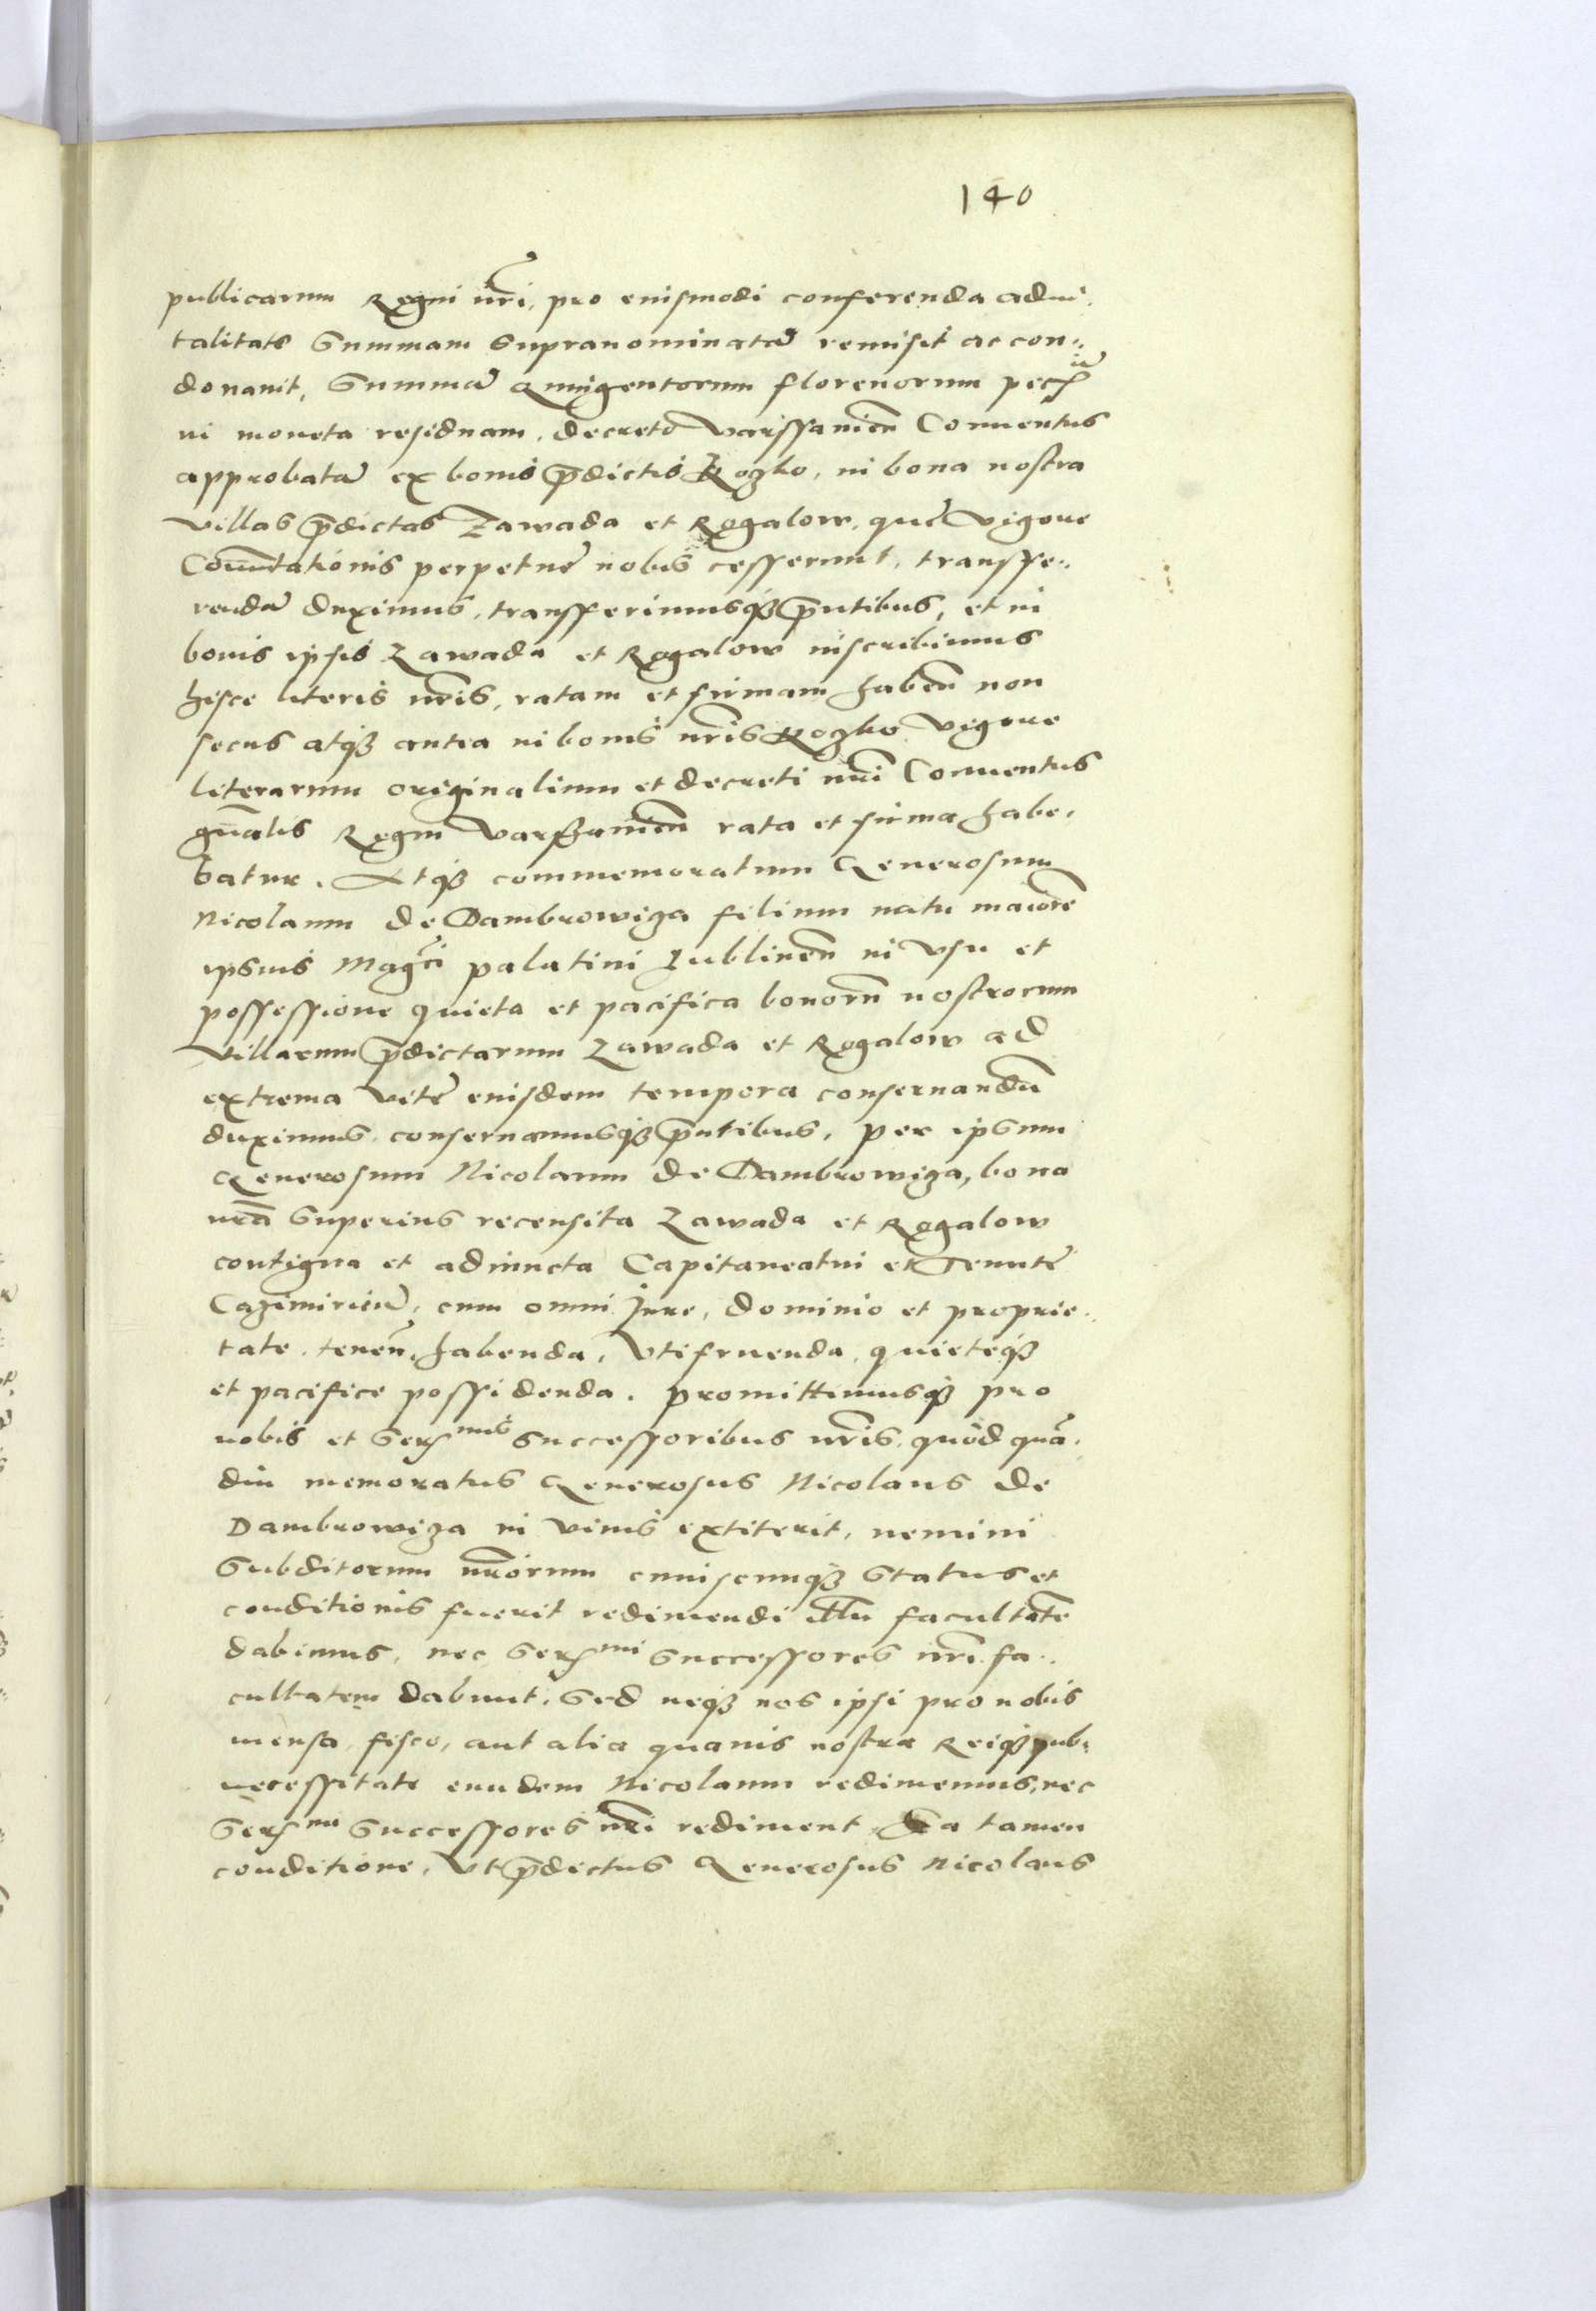 140
publicarum Regni nri, pro eiusmodi conferenda advi,
talitate Summam supranominatā remisit ac con„
donavit, Summā Quingentorum florenorum
in moneta residuam, decreto Varssavien Conventus
approbatā ex bonis p̄dictis Rozko, in bona nostra
villas p̄dictas Zawada et Rogalow, quę vigore
Com̄utationis perpetuę nobis cesserunt, transfe„
rendā duximus, transferimusq̨ p̄ntibus, et in
bonis ipsis Zawada et Rogalow inscribimus
hisce literis nr̄is, ratam et firmam haben̄ non
secus atq̨ antea in bonis nr̄is Rozko vigore
literarum originalium et decreti nr̄i Conventus
gn̄alis Regni Varssavien̄ rata et firma habe,
batur. Atq̨ commemoratum Generosum
Nicolaum de Dambrowiza filium natu maiorē
ipsius Mag̃ci palatini Lublinen̄ in vsu et
possessione quieta et pacifica bonorū nostrorum
Villarum p̄dictarum Zawada et Rogalow ad
extrema vitę eiusdem tempora conservandū
duximus, conservamusq̨ p̄ntibus, per ipsum
Generosum Nicolaum de Dambrowiza, bona
nr̄a superius recensita Zawada et Rogalow
contigua et adiuncta Capitaneatui et Tenutę
Cazimirien̄, cum omni Jure, dominio et proprie„
tate, tenen̄, habenda, Vtifruenda, quieteq̨
et pacifice possidenda. Promittimusq̨ pro
nobis et Ser^mis successoribus nr̄is, quòd quā„
diu memoratus Generosus Nicolaus de
Dambrowiza in vivis extiterit, nemini
Subditorum nr̄orum cuiuscunq̨ status et
conditionis fuerit redimendi illū facultatē
dabimus, nec Ser^mi successores nr̄i fa„
cultatem dabunt, Sed neq̨ nos ipsi pro nobis
mensa, fisco, aut alia quavis nostra Reiq̨ pub:
necessitate eundem Nicolaum redimemus, nec
Ser^mi Successores nr̄i rediment, Ea tamen
conditione, Vt p̄dictus Generosus Nicolaus